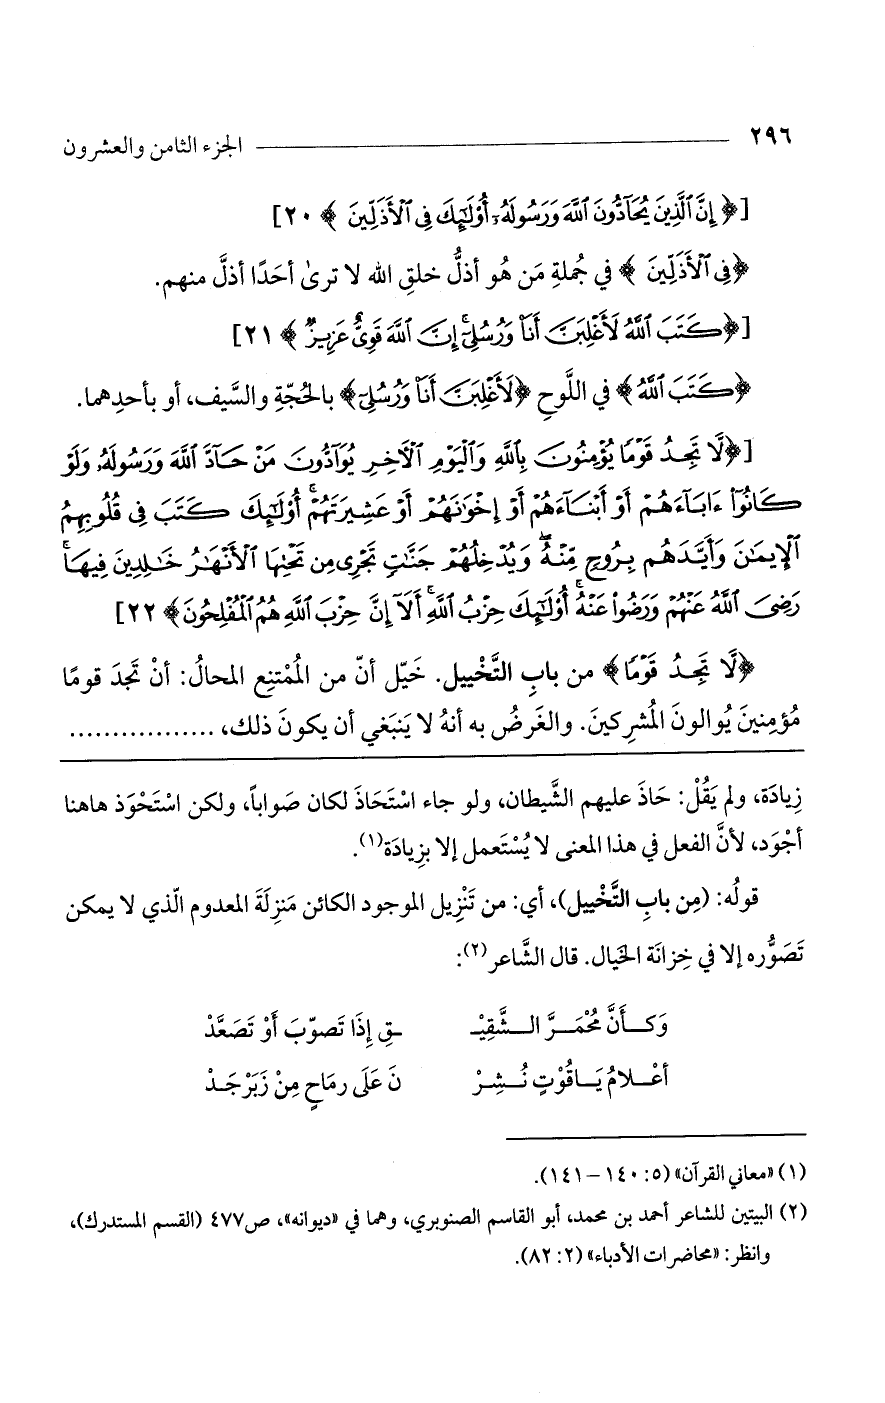 ٢٩٦ الجزء الثامن والعشرون
[﴿إِنَّ ٱلَّذِينَ يُحَآدُّونَ ٱللَّهَ وَرَسُولَهُۥٓ أُوْلَٰٓئِكَ فِى ٱلْأَذَلِّينَ﴾ ٢٠]
﴿فِى ٱلْأَذَلِّينَ﴾ في جُملةِ مَن هُو أذلُّ خلقِ الله لا ترىٰ أحَدًا أذلَّ منهم.
[﴿كَتَبَ ٱللَّهُ لَأَغْلِبَنَّ أَنَا۠ وَرُسُلِىٓ ۚ إِنَّ ٱللَّهَ قَوِىٌّ عَزِيزٌ﴾ ٢١]
﴿كَتَبَ ٱللَّهُ﴾ في اللَّوحِ ﴿لَأَغْلِبَنَّ أَنَا۠ وَرُسُلِىٓ﴾ بالحُجّةِ والسَّيف، أو بأحدِهما.
[﴿لَّا تَجِدُ قَوْمًا يُؤْمِنُونَ بِٱللَّهِ وَٱلْيَوْمِ ٱلْآخِرِ يُوَآدُّونَ مَنْ حَآدَّ ٱللَّهَ وَرَسُولَهُۥ وَلَوْ
كَانُوٓا۟ ءَابَآءَهُمْ أَوْ أَبْنَآءَهُمْ أَوْ إِخْوَٰنَهُمْ أَوْ عَشِيرَتَهُمْ ۚ أُوْلَٰٓئِكَ كَتَبَ فِى قُلُوبِهِمُ
ٱلْإِيمَٰنَ وَأَيَّدَهُم بِرُوحٍ مِّنْهُ ۖ وَيُدْخِلُهُمْ جَنَّٰتٍ تَجْرِى مِن تَحْتِهَا ٱلْأَنْهَٰرُ خَٰلِدِينَ فِيهَا ۚ
رَضِىَ ٱللَّهُ عَنْهُمْ وَرَضُوا۟ عَنْهُ ۚ أُوْلَٰٓئِكَ حِزْبُ ٱللَّهِ ۚ أَلَآ إِنَّ حِزْبَ ٱللَّهِ هُمُ ٱلْمُفْلِحُونَ﴾ ٢٢]
﴿لَّا تَجِدُ قَوْمًا﴾ من بابِ التَّخْييل. خَيّل أنّ من المُمْتنِع المحالُ: أنْ تجدَ قومًا
مُؤمنينَ يُوالونَ المُشرِكينَ. والغَرضُ به أنهُ لا يَنبَغي أن يكونَ ذلك، .................
زِيادَة، ولم يَقُلْ: حَاذَ عليهم الشَّيطان، ولو جاء اسْتَحَاذَ لكان صَواباً، ولكن اسْتَحْوَذ هاهنا
أجْوَد، لأنَّ الفعل في هذا المعنى لا يُسْتَعمل إلا بزِيادَة(١).
قولُه: (مِن بابِ التَّخْييل)، أي: من تَنْزِيل الموجود الكائن مَنزِلَةَ المعدوم الّذي لا يمكن
تَصَوُّره إلا في خِزانَة الخيال. قال الشَّاعر(٢):
وَكَـــأَنَّ مُحْمَـــرَّ الـــشَّقِيْـ ـقِ إِذَا تَصوّبَ أَوْ تَصَعَّدْ
أعْـــلامُ يَـــاقُوْتٍ نُـــشِـرْ نَ عَلَى رِمَاحٍ مِنْ زَبَرْجَـدْ
(١) «معاني القرآن» (٥: ١٤٠ – ١٤١).
(٢) البيتين للشاعر أحمد بن محمد، أبو القاسم الصنوبري، وهما في «ديوانه»، ص٤٧٧ (القسم المستدرك)،
وانظر: «محاضرات الأدباء» (٢: ٨٢).